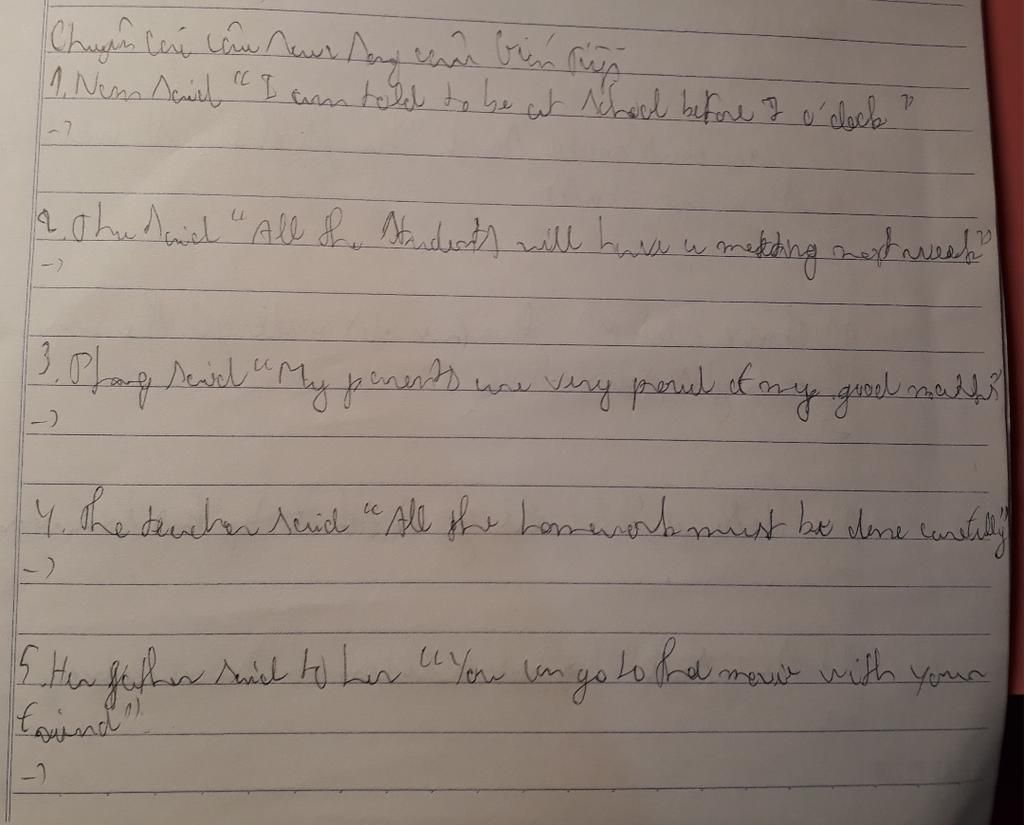 Chuyển các câu sau sang câu gián tiếp
1. Nam said "I am told to be at school before 7 o'clock"
->
2. Thu said "All the students will have a meeting next week"
->
3. Phong said "My parents are very proud of my good marks"
->
4. The teacher said "All the homework must be done carefully"
->
5. Her father said to her "You can go to the movie with your
friend"
->